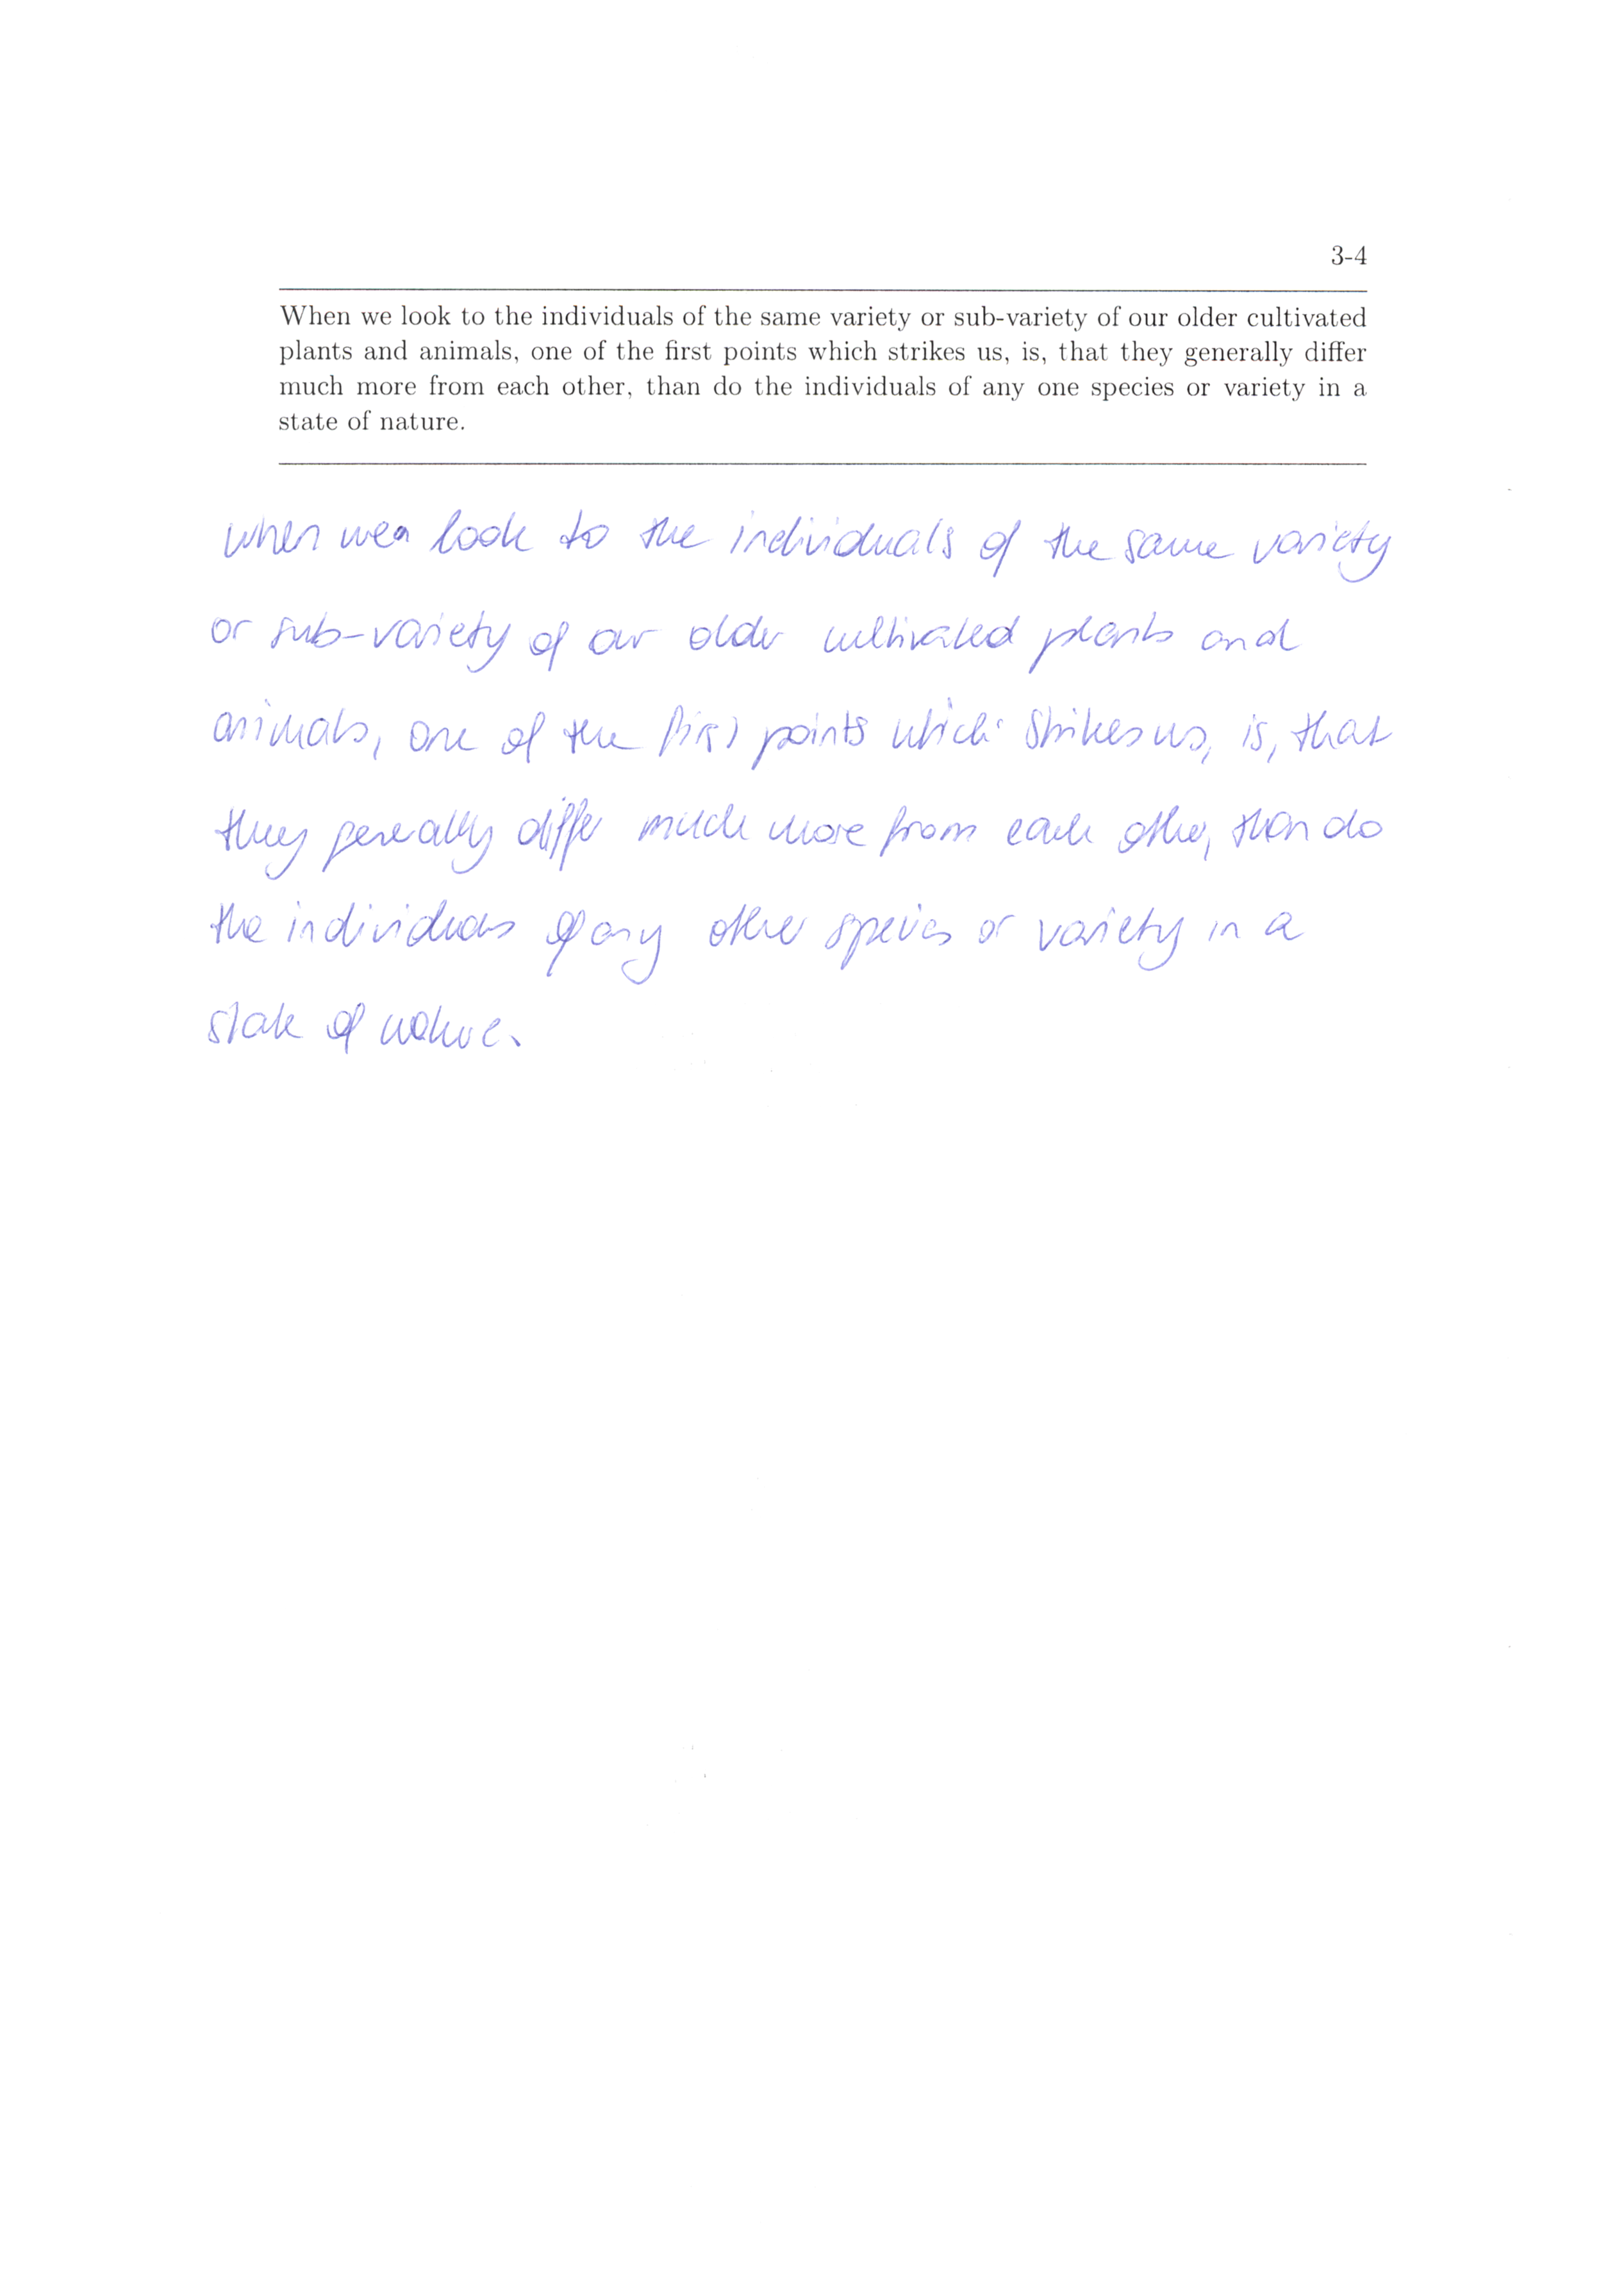 3-4
When we look to the individuals of the same variety or sub-variety of our older cultivated
plants and animals, one of the first points which strikes us, is, that they generally differ
much more from each other, than do the individuals of any one species or variety in a
state of nature.
when wea look to the individuals of the same variety
or sub-variety of our older cultivated plants and
animals, one of the first points which strikes us, is, that
they generally differ much more from each other, than do
the individuas of any other species or variety in a
state of nature.